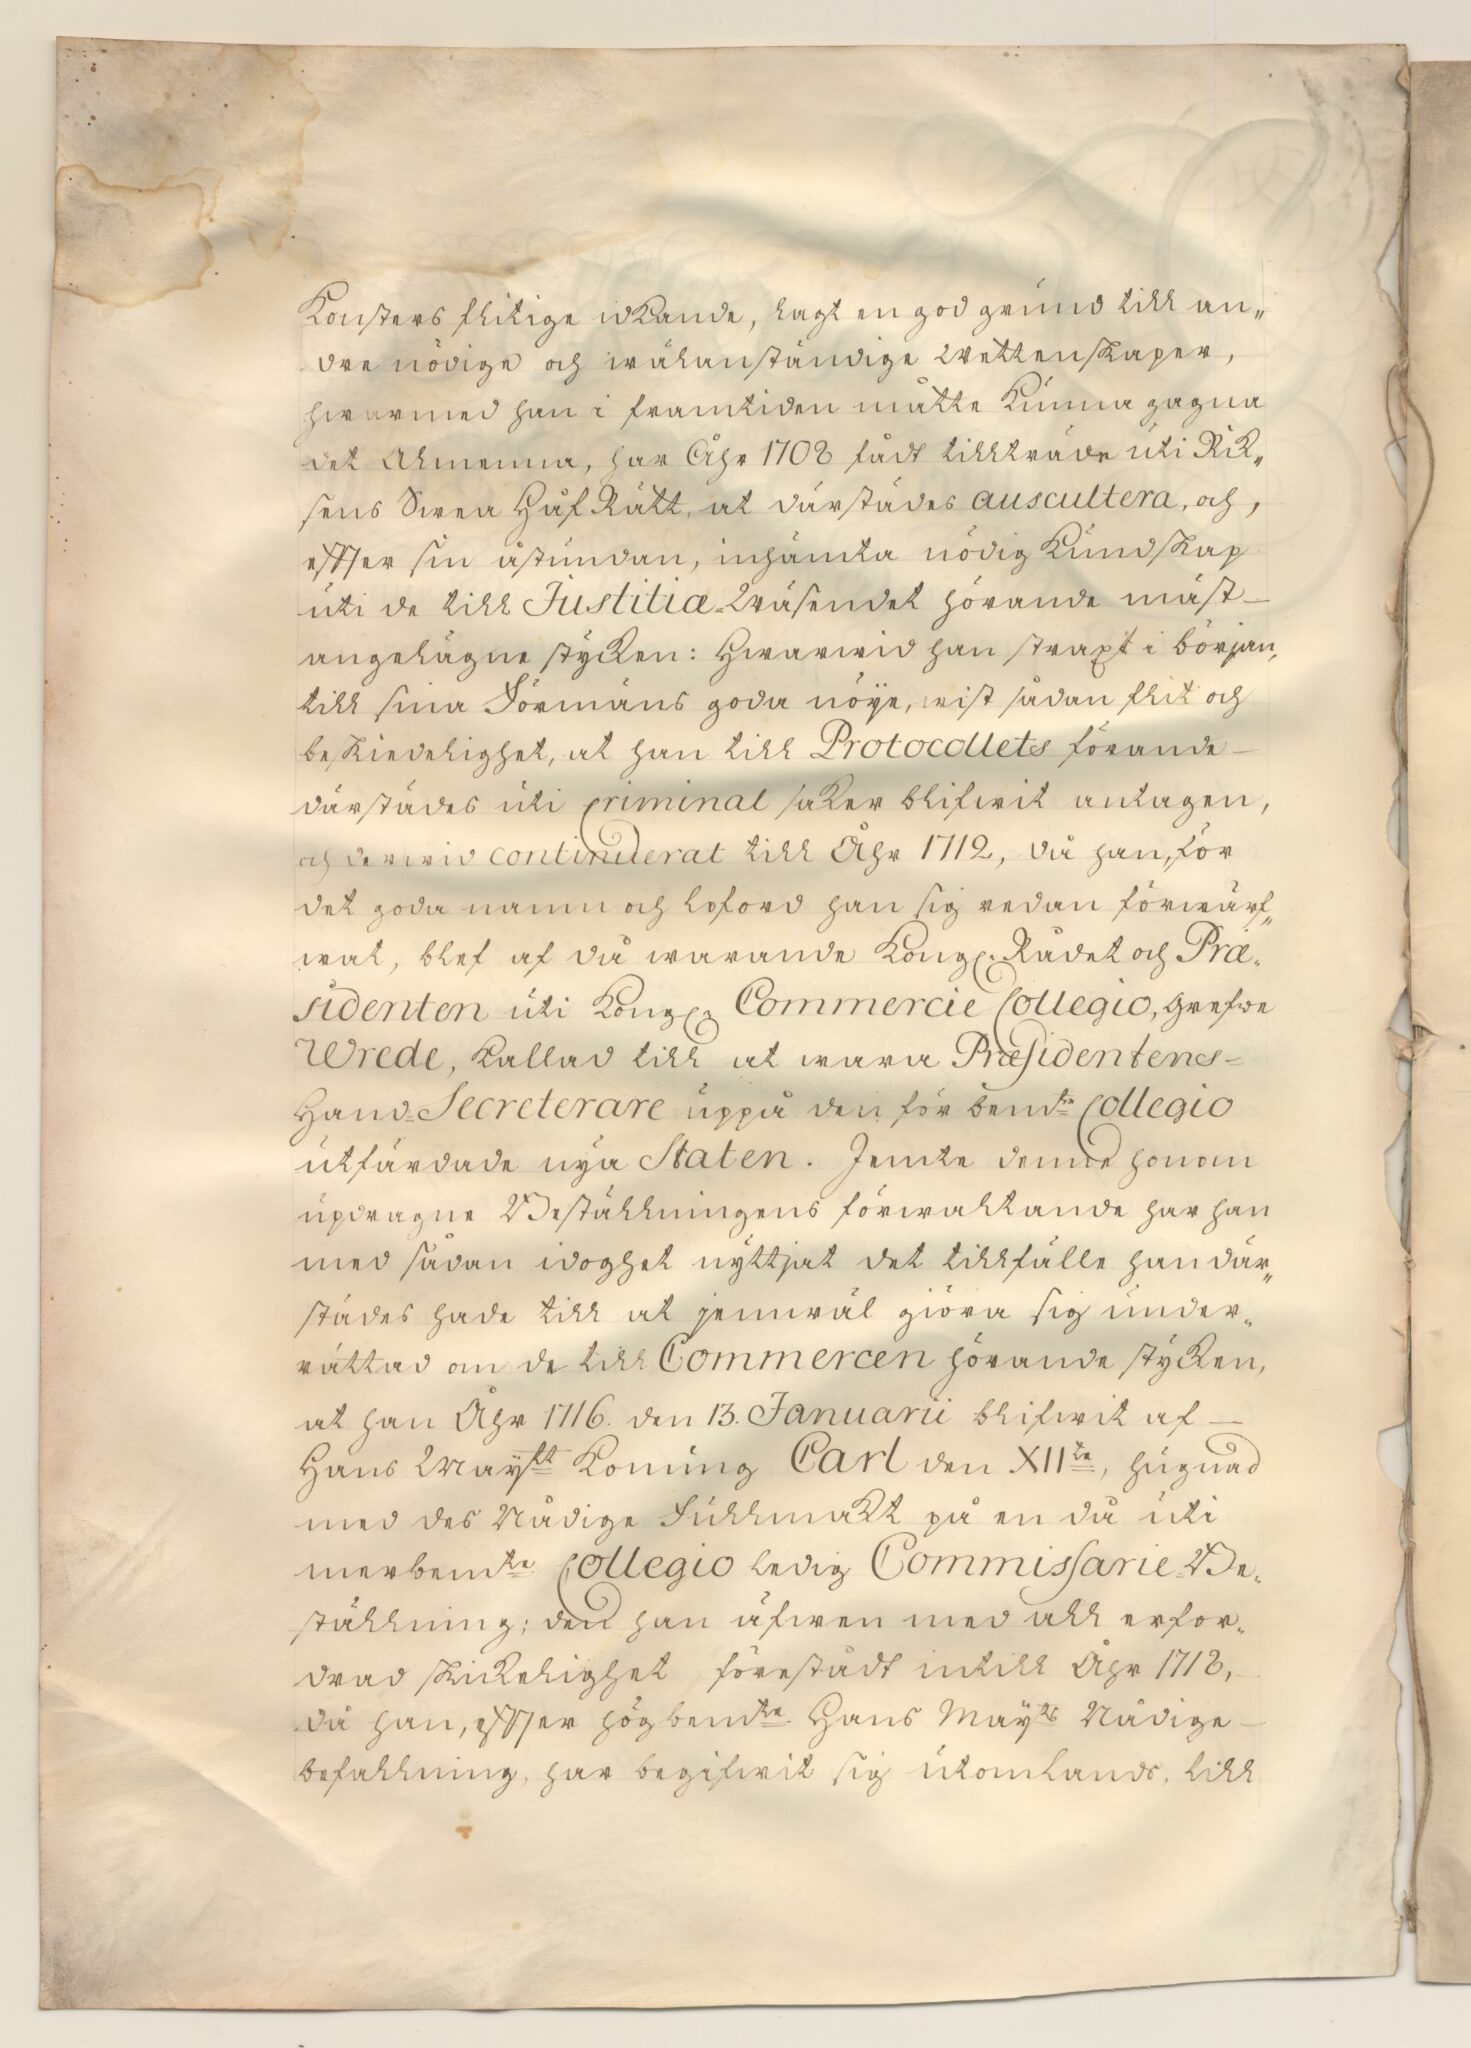 Konsters flitige idkande, lagt en god grund till an„
dre nödige och wälanständige Wettenskaper,
hwarmed han i framtiden måtte kunna gagna
det Allmenna, har Åhr 1708 fådt tillträde uti Rik„
sens Swea HåfRätt, at därstädes auscultera, och,
effter sin åstundan, inhämta nödig Kundskap
uti de till Justitiæ-Wäsendet hörande mäst–
angelägne stycken: Hwarwid han straxt i början,
till sina Förmäns goda nöye, wist sådan flit och
beskiedelighet, at han till Protocollets förande–
därstädes uti criminal saker blifwit antagen,
och derwid continuerat till Åhr 1712, då han, för
det goda namn och loford han sig redan förwärf„
wat, blef af då warande Kongl. Rådet och Præ-
sidenten uti Kongl. Commercie Collegio, Grefwe
Wrede, kallad till at wara Præsidentens–
Hand-Secreterare uppå den för bemte Collegio
utfärdade nya Staten. Jemte denne honom
updragne Beställningens förwaltande har han
med sådan idoghet nyttjat det tillfälle han där„
städes hade till at jemwäl giöra sig under-
rättad om de till Commercen hörande stycken,
at han Åhr 1716. den 13. Januarii blifwit af –
Hans Mayst:t Konung Carl den XIIte, hugnad
med des Nådige Fullmakt på en då uti
merbemte Collegio ledig Commissarie-Be-
ställning; den han äfwen med all erfor-
drad skickelighet förestådt intill Åhr 1718,
då han, effter högbemte Hans Mayts Nådige–
befallning, har begifwit sig utomlands, till